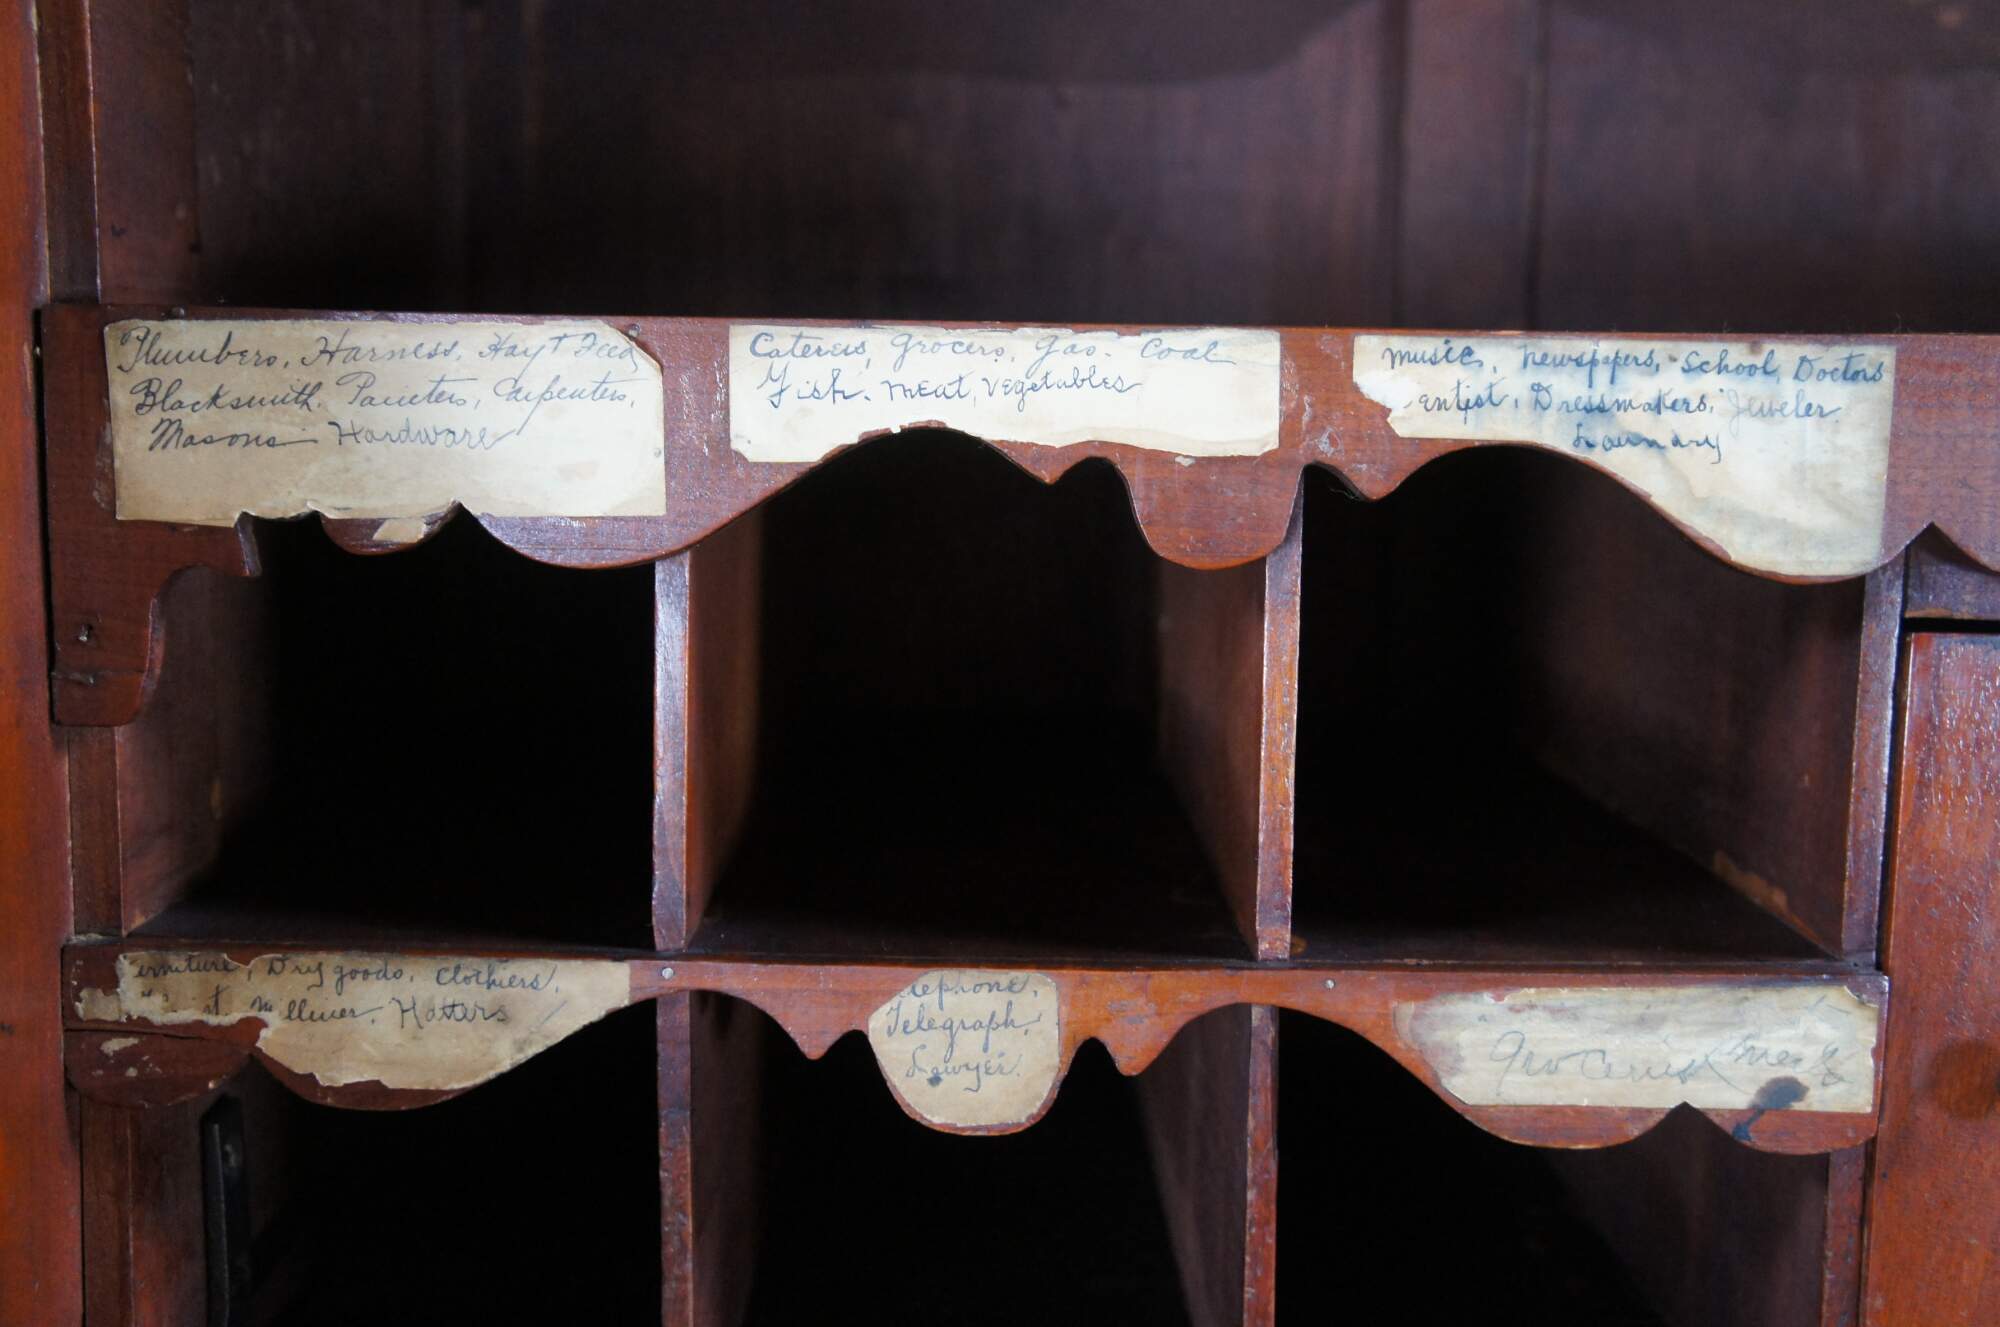 Plumbers, Harness, Hay + Feed
Blacksmith. Painters, Carpenters,
Masons Hardware
Caterers, Grocers, Gas. Coal
Fish. Meat, Vegetables
Music, Newspapers, School, Doctors
entist, Dressmakers, Jeweler
Laundry
erniture, Dry goods, Clothiers,
Milliner. Hatters
lephone,
Telegraph,
Lawyer.
Groceries